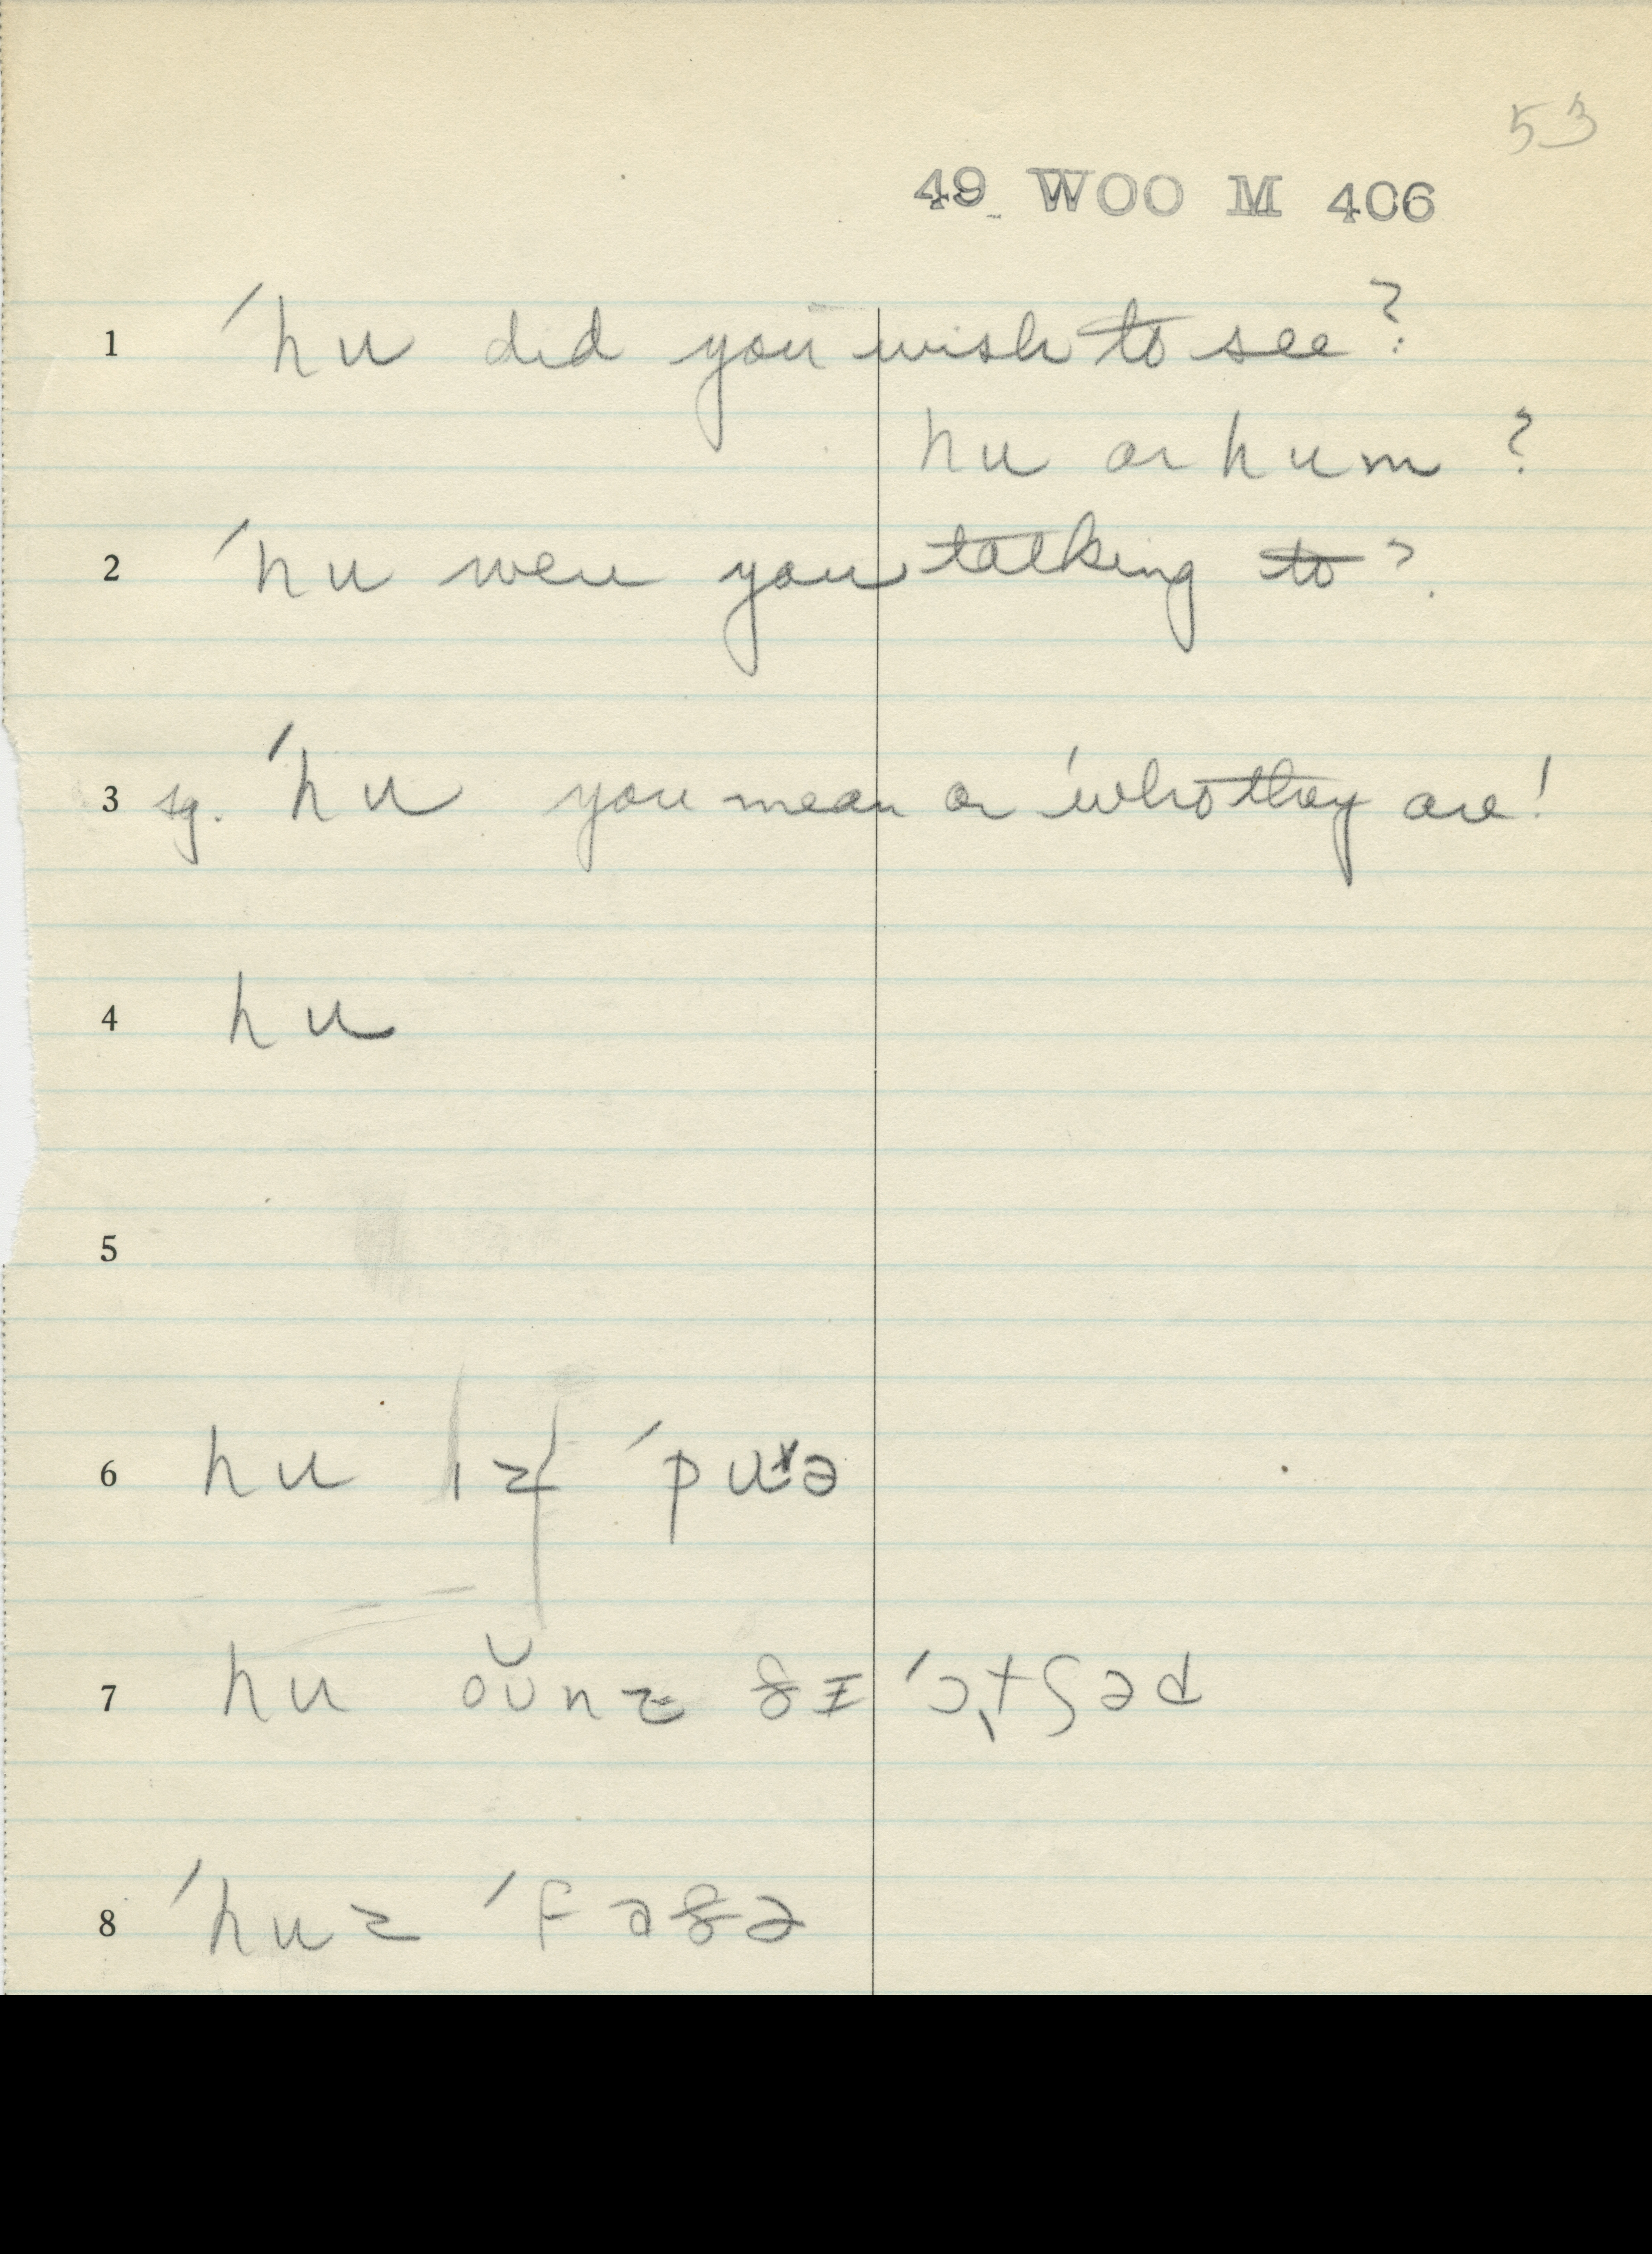 53
49 WOO M 406
1 ˈhu did you wish to see?
hu or hum ?
2 ˈhu were you talking to?
3 sg. ˈhu you mean or ˈwho they are!
4 hu
5
6 hu ɪz ˈpuɚ
7 hu oʊ̆nz ðɪ ˈɔɪtʃəd
8 ˈhuz ˈfəðə